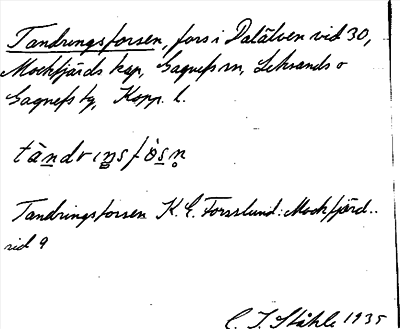 Tandringsforsen, fors i Dalälven vid 30,
Mockfjärds kap, Gagnefs sn, Leksands o
Gagnefs tg, Kopp. l.
tàndrıŋsfòs̱n̥
Tandringsforsen K. E. Forsslund: Mockfjärd..
sid 9
C. I. Ståhle 1935